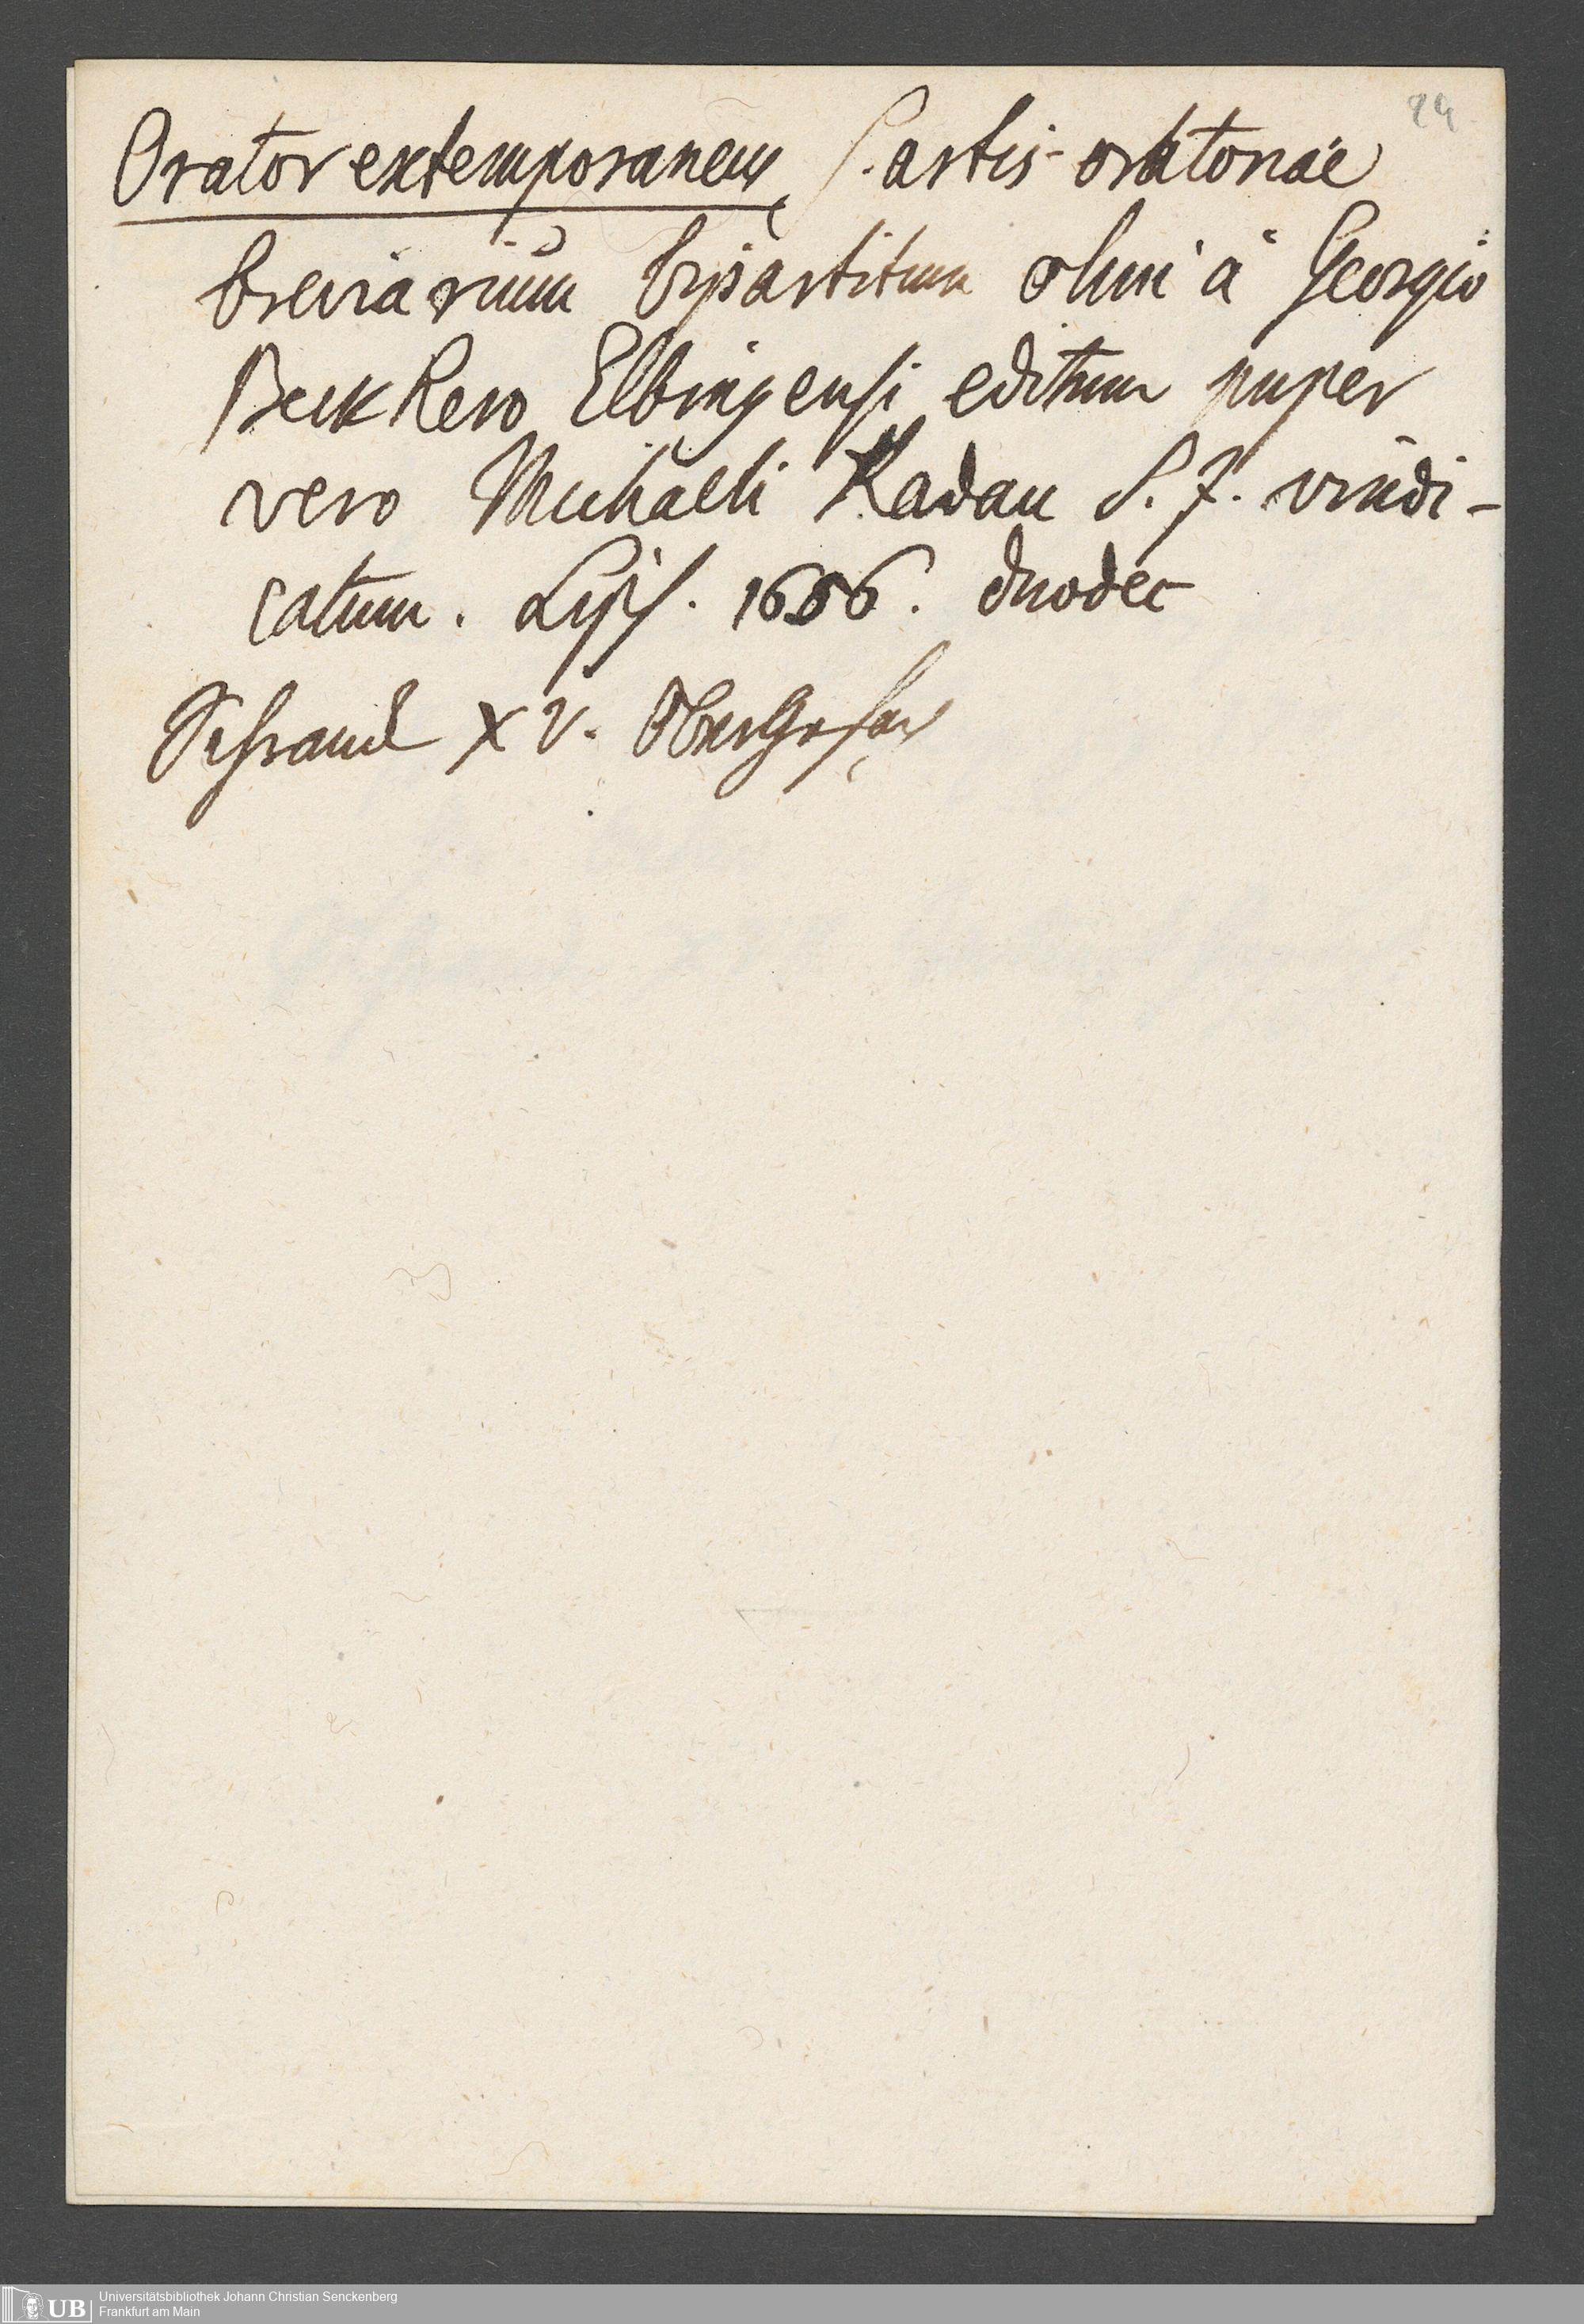 24
Orator extemporaneus S. artis oratoriae
breviarium bipartitum olim a Georgio
Beckhero Elbingensi editum nuper
vero Michaeli Radau S. J. vindi-
catum. Lips. 1656. duodec
Schrank XV. Obergeschoss
UB
Universitätsbibliothek Johann Christian Senckenberg
Frankfurt am Main